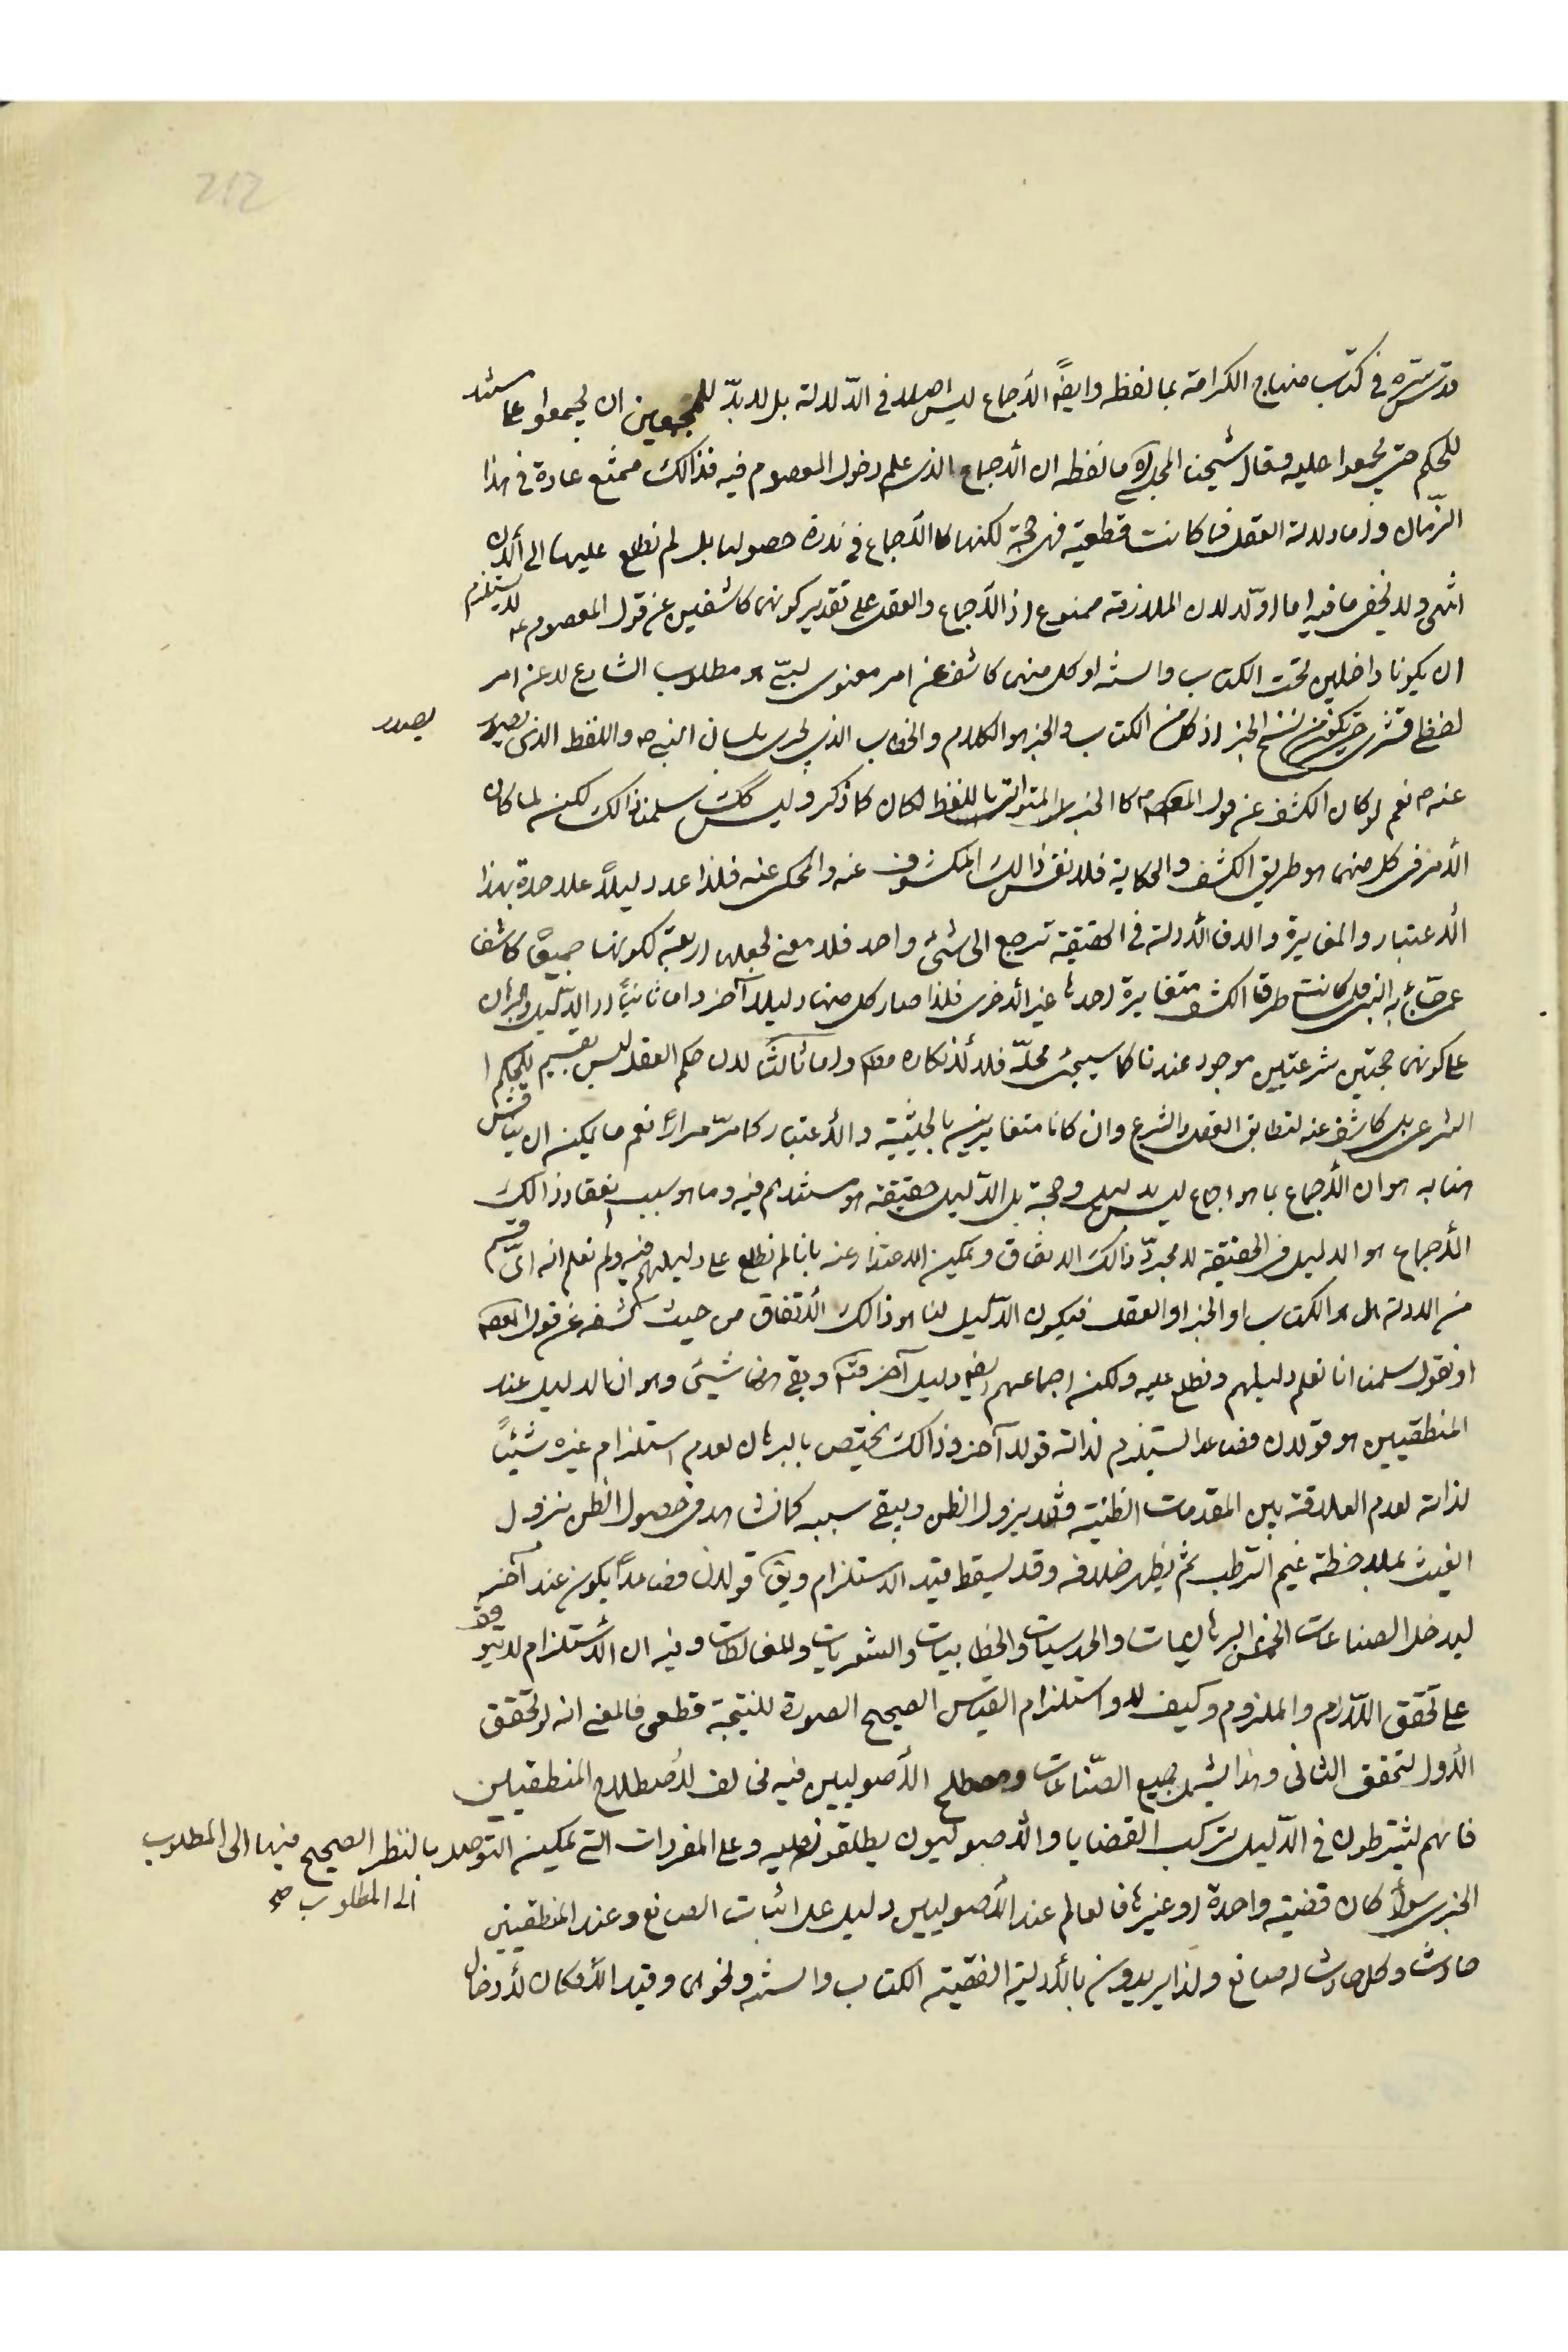 212
قدس سره في كتاب منهاج الكرامة بما لفظه وايضًا الأجماع ليس اصلا في الدّلالة بل لا بدّ للمجمعين ان يجمعوا على مستند
للحكم حتى يجمعوا عليه وقال شيخنا ما لفظه ان الأجماع الذى علم دخول المعصوم فيه فذالك ممتنع عادة في هذا
الزّمان واما دلالة العقل فما كانت قطعية فهى حجة لكنها كالأجماع في ندرة حصولها بل لم نطلع عليها الى ألآن
انتهى ولا يخفى ما فيه اما اوّلا لان الملازمة ممنوع اذ الأجماع والعقل على تقدير كونهما كاشفين عن قول المعصوم ع لا يستلزم
ان يكونا داخلين تحت الكتاب والسنة او كل منهما كاشف عن امر معنوى لبّى هو مطلوب الشارع لا عن امر
لفظى قشرى حتى يكون من سنخ الخبر اذ كل من الكتاب والخبر هو الكلام والخطاب الذى يجرى بلسان النبى ص واللفظ الذى يصدر
يصدر
عنه ص نعم لو كان الكشف عن قول المعصوم كالخبر المتواتر باللفظ لكان كما ذكر وليس كك سلمنا ذالك لكن لما كان
الأمر فى كل منهما هو طريق الكشف والحكاية فلا نفس ذالك المكشوف عنه والمحكى عنه فلذا عد دليلاً علاحدة بهذا
الأعتبار والمغايرة والا فالأدلة في الحقيقة ترجع الى شئ واحد فلا معنى لجعلها اربعة لكونها جميعًا كاشفا
عما جاء به النبى ص لما كانت طرق الكشف متغايرة احدها غير الأخرى فلذا صار كل منها دليلا آخر واما ثانيًا اذ الدّليل والبرهان
على كونهما حجتين شرعيتين موجود عندنا كما سيجئ محلّه فلا لأنكاره معنى واما ثالثًا لان حكم العقل ليس بقسيم للحكم ا
الشرعى بل كاشف عنه لتطابق العقل والشرع وان كانا متغايرين بالحيثية والأعتبار كما مرّ مرارًا نعم ما يمكن ان يناقش
هنا به هو ان الأجماع بما هو اجماع ليس بدليل وحجة بل الدّليل حقيقة هو مستندهم فيه وما هو سبب انعقاد ذالك
الأجماع هو الدليل في الحقيقة لا مجردّ ذالك الاتفاق ويمكن الاعتذار عنه بانا لم نطلع على دليلهم فيه ولم نعلم انه اىّ قسم
من الادلة هل هو الكتاب او الخبر او العقل فيكون الدّليل لنا هو ذالك الأتفاق من حيث كشفه عن قول المعصوم
او نقول سلمنا انا نعلم دليلهم ونطلع عليه ولكن اجماعهم ايضا دليل آخر وبقى هنا شيئ وهو ان الدليل عند
المنطقيين هو قولان فصاعدا يستلزم لذاته قولا آخر وذالك يختص بالبرهان لعدم استلزام غيره شيئًا
لذاته لعدم العلاقة بين المقدمات الظنية وقد يزول الظن ويبقى سببه كما نشاهد في حصول الظن بنزول
الغيث بملاحظة غيم الرطب ثم يظهر خلافه وقد يسقط قيد الاستلزام ويق قولان فصاعدًا يكون عنه آخر
ليدخل الصناعات الخمس البرهانيات والحدسيات والخطابيات والشعريات والمغالطات وفيه ان الأستلزام لا يتوقف
على تحقق اللّازم والملزوم وكيف لا واستلزام القياس الصحيح الصورة للنتيجة قطعى فالمعنى انه لو تحقق
الأول لتحقق الثانى وهذا يشمل جميع الصّناعات ومصطلح الأصوليين فيه مخالف لأصطلاح المنطقيين
فانهم يشترطون في الدّليل تركب القضايا والأصوليون يطلقونه عليه وعلى المفردات التى يمكن التوصل بالنظر الصحيح فيها الى المطلوب
الى المطلوب صح
الخبرى سوأ كان قضية واحدة او غيرها فالعالم عند الأصوليين دليل على اثبات الصانع وعند المنطقيين
حادث وكل حادث له صانع ولذا يريدون بالأدلة الفقهية الكتاب والسنة ونحوهما وقيد الأمكان لأدخال